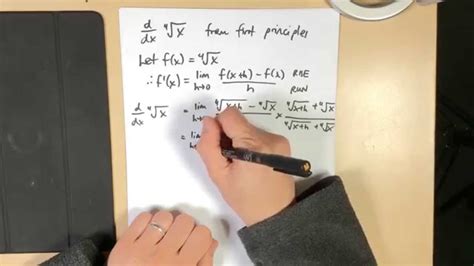 d/dx ⁴√x from first principles
Let f(x) = ⁴√x
∴ f'(x) = lim h→0 f(x+h) − f(x) / h RISE RUN
d/dx ⁴√x = lim h→0 ⁴√x+h − ⁴√x × ⁴√x+h + ⁴√x / ⁴√x+h + ⁴√x
= lim